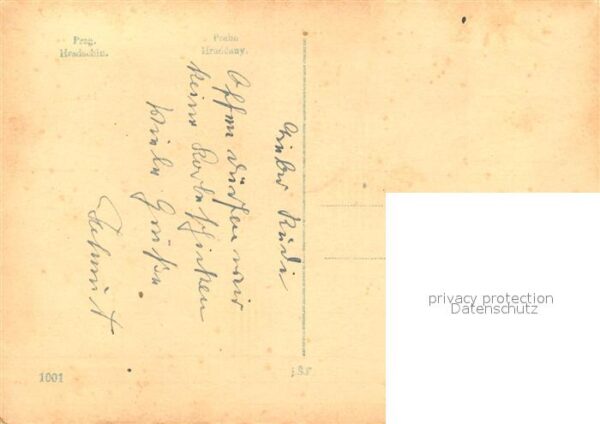 Prag.
Hradschin.
Praha
Hradčany.
Lieber Rudi
Offen dürfen wir
keine Karte schicken
Viele Grüße
Helmut
1001
privacy protection
Datenschutz